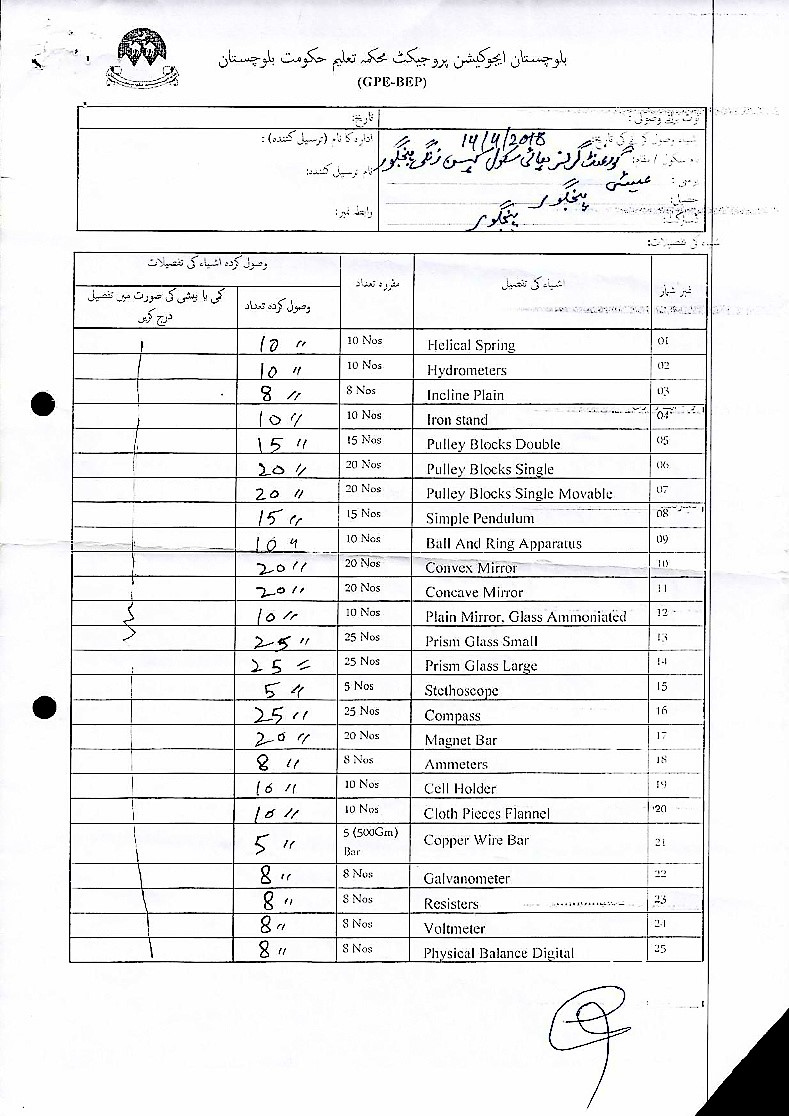 بلوچستان ایجوکیشن پروجیکٹ محکمہ تعلیم حکومت بلوچستان
(GPE-BEP)
تاریخ:
ادارہ کا نام (ترسیل کنندہ):
14/4/2018
گورنمنٹ گرلز ہائی سکول
نام ترسیل کنندہ:
عیسئی
پنجگور
رابطہ نمبر:
پنجگور
اشیاء کی تفصیلات:
نمبر شمار اشیاء کی تفصیل مقررہ تعداد وصول کردہ اشیاء کی تفصیلات
وصول کردہ تعداد کمی یا بیشی کی صورت میں تفصیل درج کریں
01 Helical Spring 10 Nos 10 〃
02 Hydrometers 10 Nos 10 〃
03 Incline Plain 8 Nos 8 〃
04 Iron stand 10 Nos 10 〃
05 Pulley Blocks Double 15 Nos 15 〃
06 Pulley Blocks Single 20 Nos 20 〃
07 Pulley Blocks Single Movable 20 Nos 20 〃
08 Simple Pendulum 15 Nos 15 〃
09 Ball And Ring Apparatus 10 Nos 10 〃
10 Convex Mirror 20 Nos 20 〃
11 Concave Mirror 20 Nos 20 〃
12 Plain Mirror, Glass Ammoniated 10 Nos 10 〃
13 Prism Glass Small 25 Nos 25 〃
14 Prism Glass Large 25 Nos 25 〃
15 Stethoscope 5 Nos 5 〃
16 Compass 25 Nos 25 〃
17 Magnet Bar 20 Nos 20 〃
18 Ammeters 8 Nos 8 〃
19 Cell Holder 10 Nos 10 〃
20 Cloth Pieces Flannel 10 Nos 10 〃
21 Copper Wire Bar 5 (500Gm) Bar 5 〃
22 Galvanometer 8 Nos 8 〃
23 Resisters 8 Nos 8 〃
24 Voltmeter 8 Nos 8 〃
25 Physical Balance Digital 8 Nos 8 〃